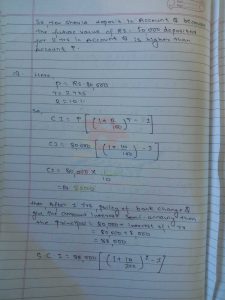 So, you should deposit in Account Q because
the future value of RS. 50000 deposited
for 2 yrs in Account Q is higher than
account P.
Here,
P = RS. 80,000
R = 10%
So,
C I = P [(1 + R/100)^T - 1]
= 80,000 [(1 + 10/100) - 1]
= 80,000 × /10
= RS 8000
then After 1 yrs policy of bank change &
the principal = 80,000 + interest of 1 yr
= 80,000 + 8,000
= 88,000
S C I = 88,000 [(1 + 10/200)^2 - 1]